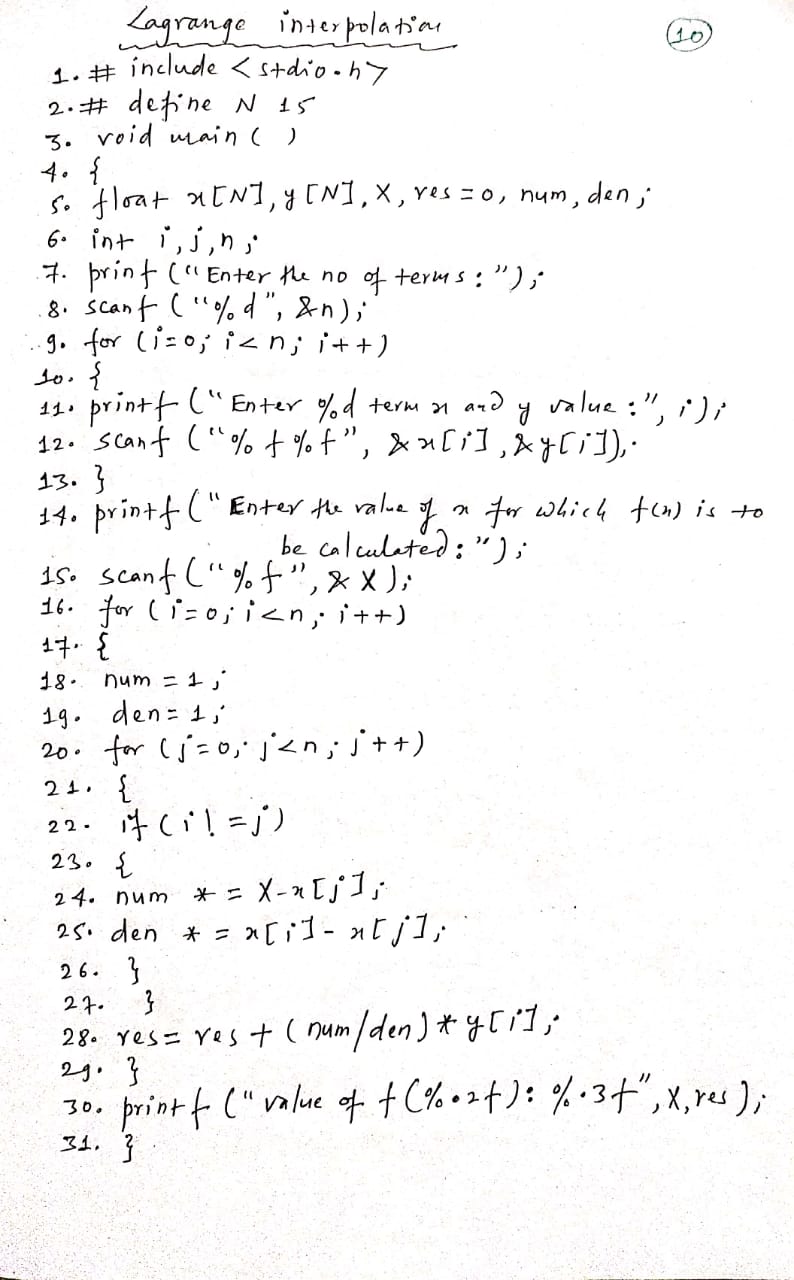 Lagrange interpolation
10
1. # include < stdio.h>
2. # define N 15
3. void main ( )
4. {
5. float x[N], y[N], X, res = 0, num, den;
6. int i, j, n;
7. print f ("Enter the no of terms : ");
8. scanf ("%d", &n);
9. for (i=0; i<n; i++)
10. {
11. printf ("Enter %d term x and y value :", i);
12. scanf ("%f %f", &x[i], &y[i]);
13. }
14. printf ("Enter the value of x for which f(x) is to
be calculated : ");
15. scanf ("%f", & X );
16. for (i=0; i<n; i++)
17. {
18. num = 1;
19. den = 1;
20. for (j=0; j<n; j++)
21. {
22. if (i! =j)
23. {
24. num * = X-x[j];
25. den * = x[i] - x[j];
26. }
27. }
28. res = res + (num/den) * y[i];
29. }
30. printf ("value of f(%.2f): %.3f", X, res );
31. }